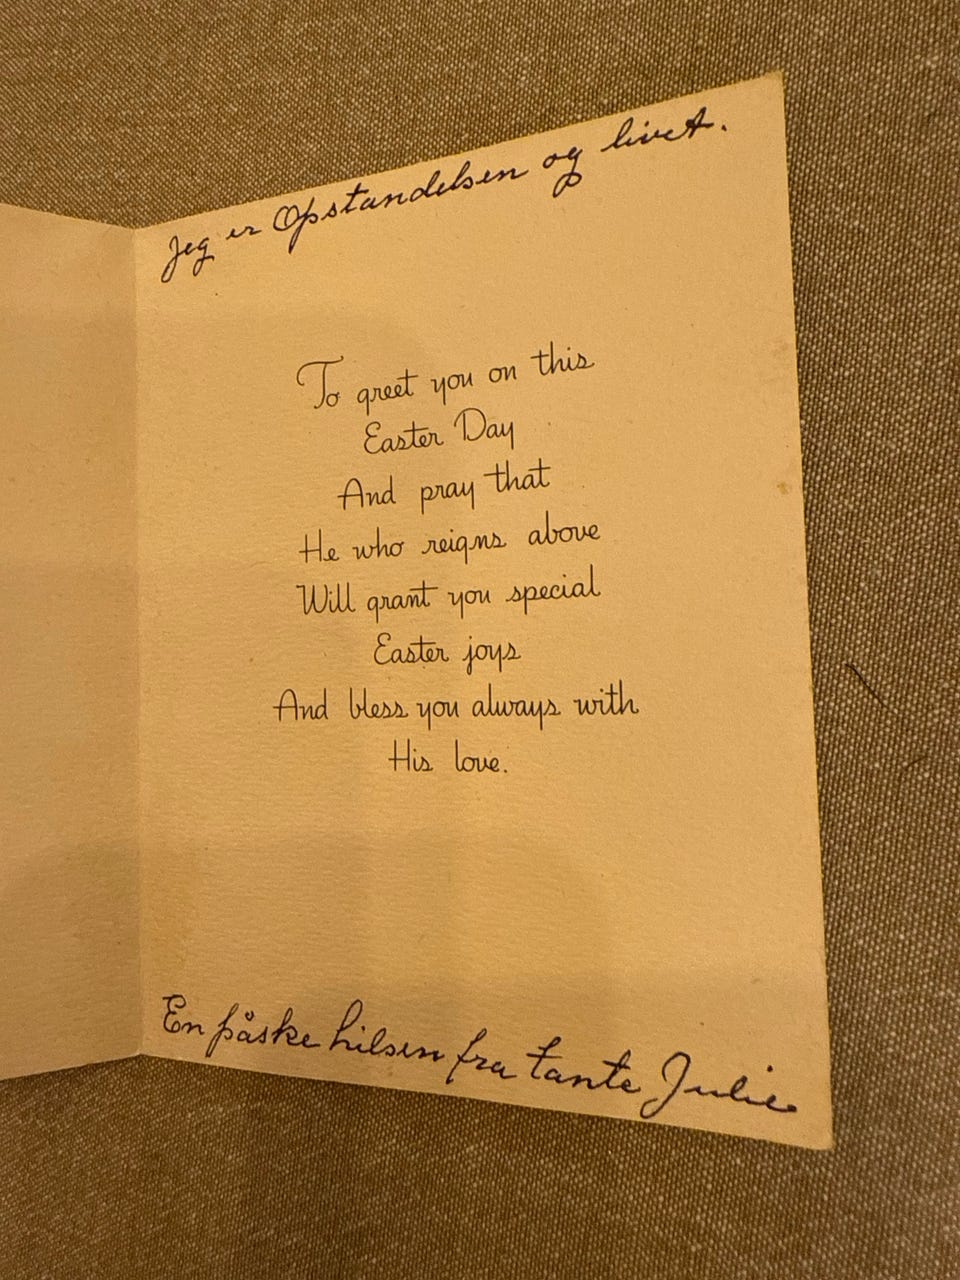 Jeg er Opstandelsen og livet.
To greet you on this
Easter Day
And pray that
He who reigns above
Will grant you special
Easter joys
And bless you always with
His love.
En påske hilsen fra tante Julie